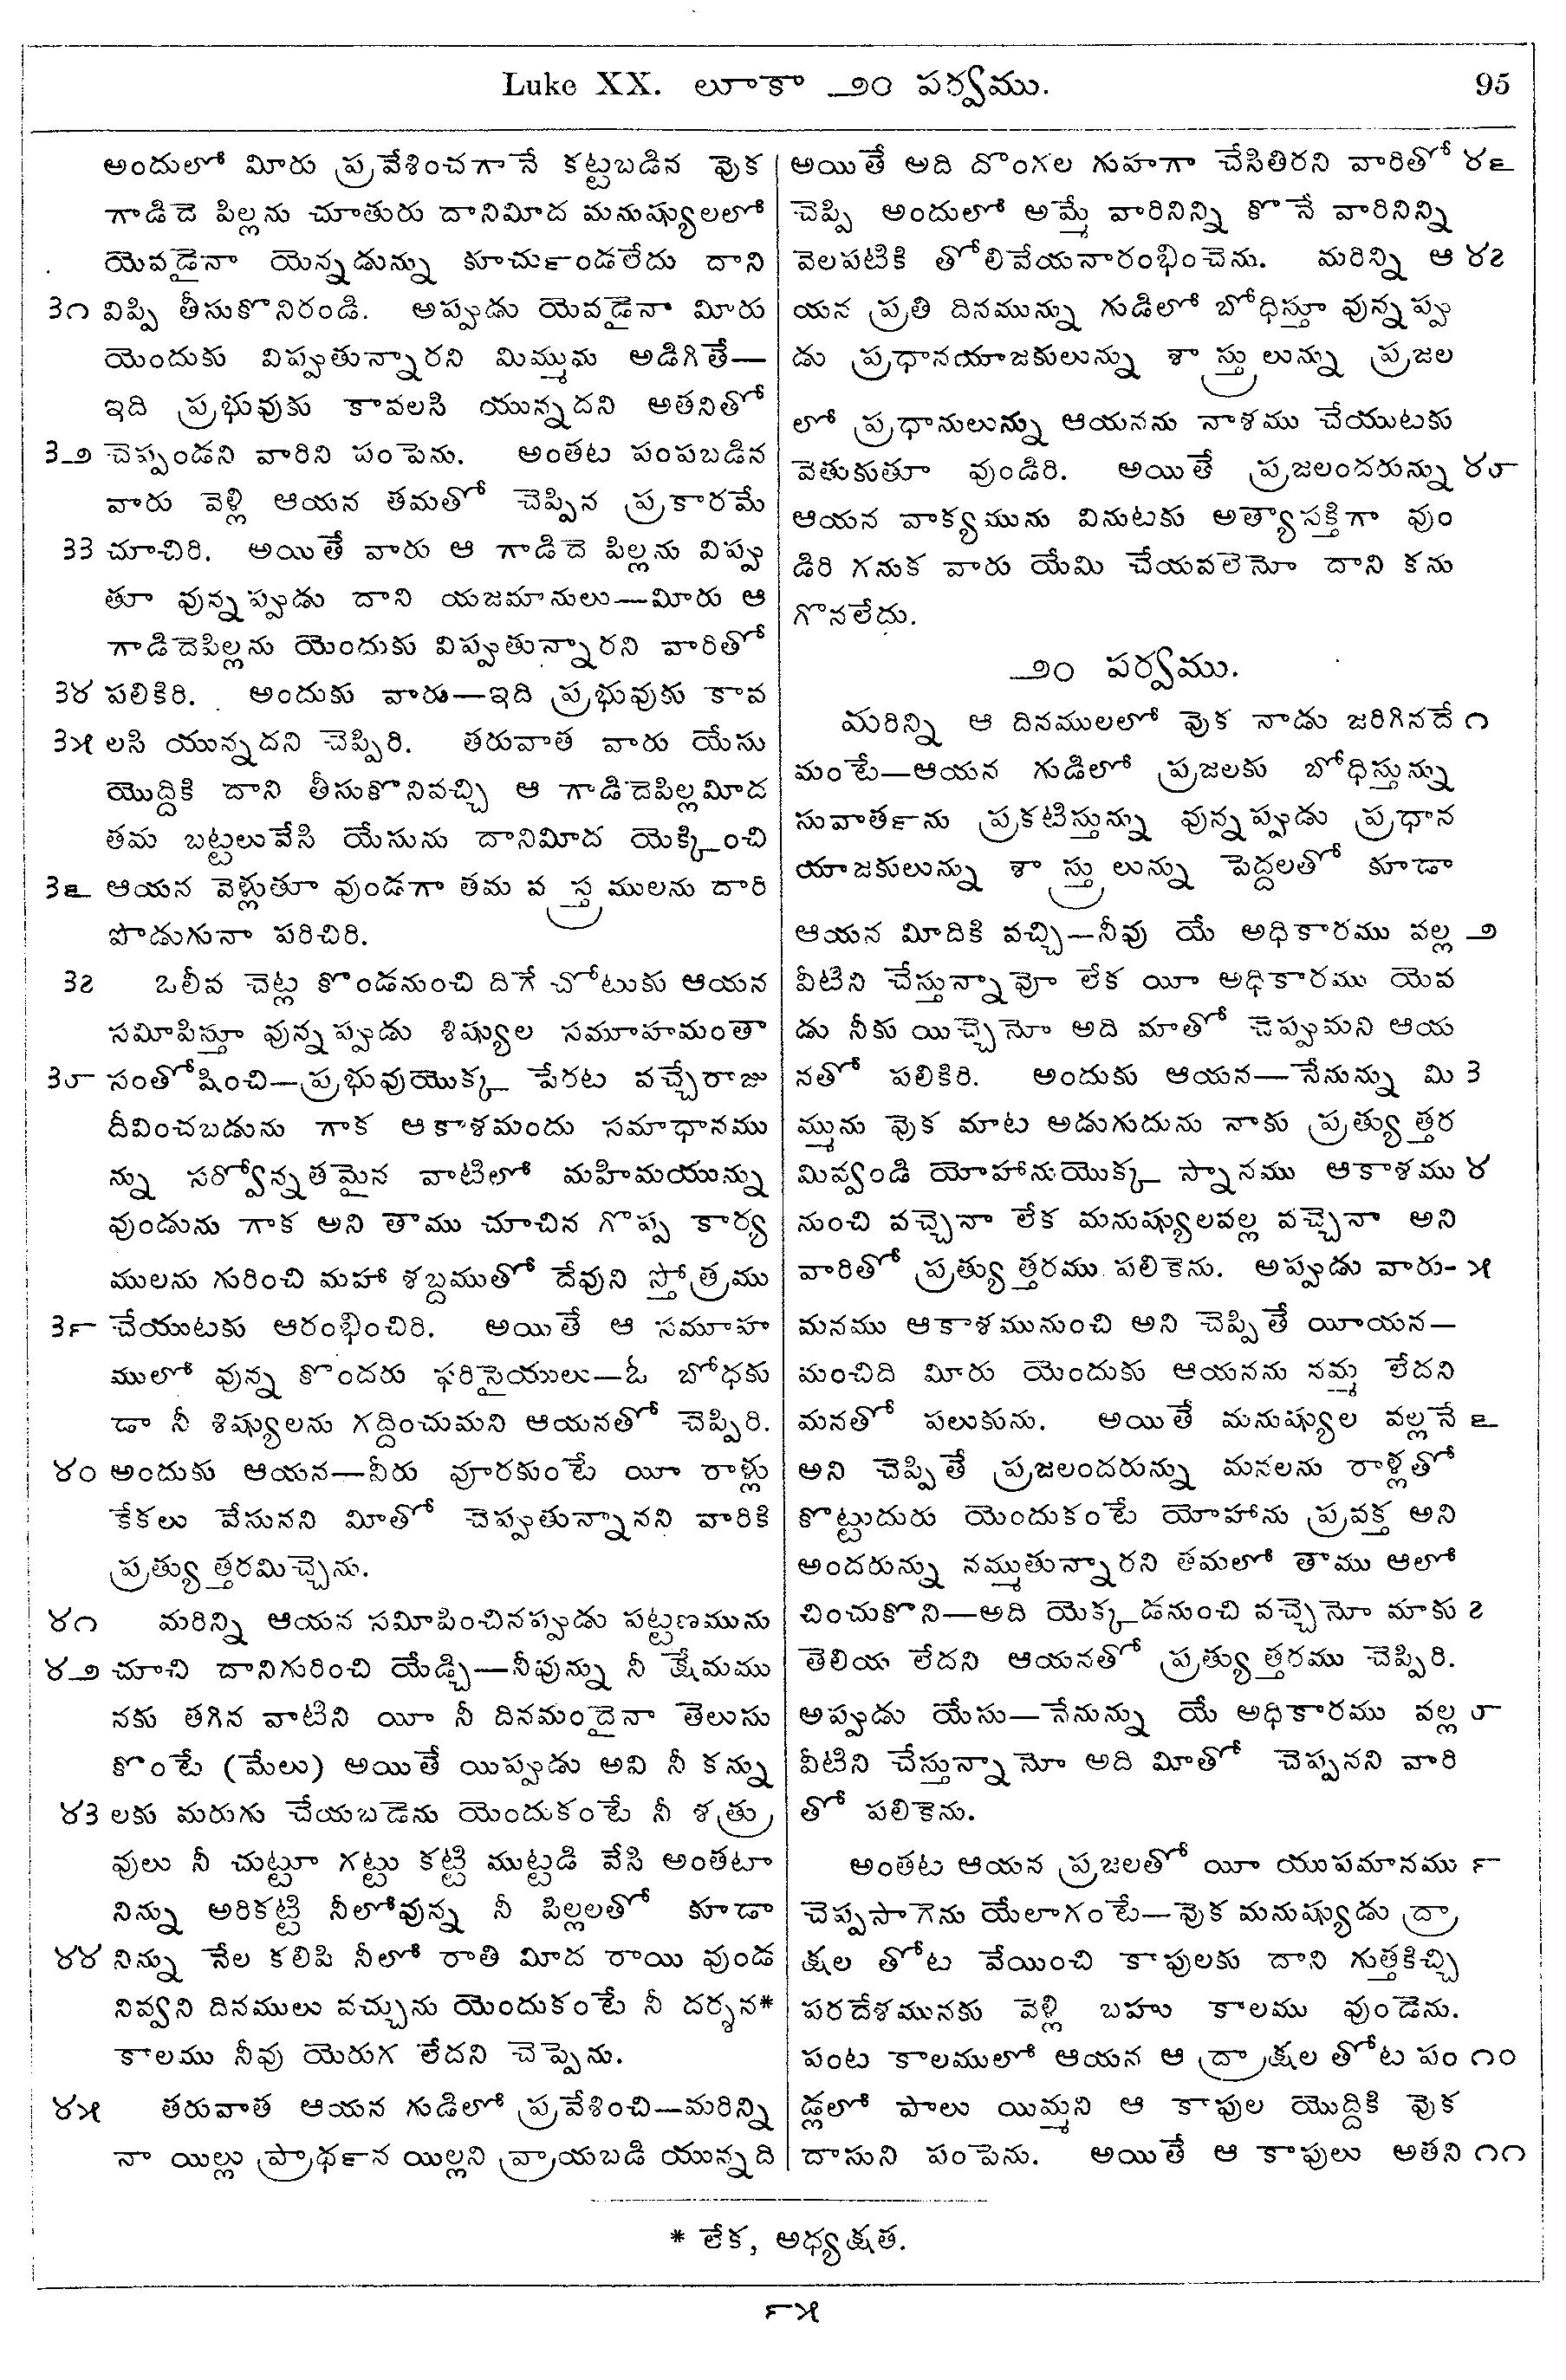 Luke XX. లూకా ౨౦ పర్వము. 95
అందులో మీరు ప్రవేశించగానే కట్టబడిన వుక
గాడిదె పిల్లను చూతురు దానిమీద మనుష్యులలో
యెవడైనా యెన్నడున్ను కూచు౯ండలేదు దాని
౩౧ విప్పి తీసుకొనిరండి. అప్పుడు యెవడైనా మీరు
యెందుకు విప్పుతున్నారని మిమ్మును అడిగితే—
ఇది ప్రభువుకు కావలసి యున్నదని అతనితో
౩౨ చెప్పండని వారిని పంపెను. అంతట పంపబడిన
వారు వెళ్లి ఆయన తమతో చెప్పిన ప్రకారమే
౩౩ చూచిరి. అయితే వారు ఆ గాడిదె పిల్లను విప్పు
తూ వున్నప్పుడు దాని యజమానులు—మీరు ఆ
గాడిదెపిల్లను యెందుకు విప్పుతున్నారని వారితో
౩౪ పలికిరి. అందుకు వారు—ఇది ప్రభువుకు కావ
౩౫ లసి యున్నదని చెప్పిరి. తరువాత వారు యేసు
యొద్దికి దాని తీసుకొనివచ్చి ఆ గాడిదెపిల్లమీద
తమ బట్టలువేసి యేసును దానిమీద యెక్కించి
౩౬ ఆయన వెళ్లుతూ వుండగా తమ వస్త్రములను దారి
పొడుగునా పరిచిరి.
౩౭ ఒలీవ చెట్ల కొండనుంచి దిగే చోటుకు ఆయన
సమీపిస్తూ వున్నప్పుడు శిష్యుల సమూహమంతా
౩౮ సంతోషించి—ప్రభువుయొక్క పేరట వచ్చేరాజు
దీవించబడును గాక ఆకాశమందు సమాధానము
న్ను సర్వోన్నతమైన వాటిలో మహిమయున్ను
వుండును గాక అని తాము చూచిన గొప్ప కార్య
ములను గురించి మహా శబ్దముతో దేవుని స్తోత్రము
౩౯ చేయుటకు ఆరంభించిరి. అయితే ఆ సమూహ
ములో వున్న కొందరు ఫరిసైయులు—ఓ బోధకు
డా నీ శిష్యులను గద్దించుమని ఆయనతో చెప్పిరి.
౪౦ అందుకు ఆయన—వీరు వూరకుంటే యీ రాళ్లు
కేకలు వేసునని మీతో చెప్పుతున్నానని వారికి
ప్రత్యుత్తరమిచ్చెను.
౪౧ మరిన్ని ఆయన సమీపించినప్పుడు పట్టణమును
౪౨ చూచి దానిగురించి యేడ్చి—నీవున్ను నీ క్షేమము
నకు తగిన వాటిని యీ నీ దినమందైనా తెలుసు
కొంటే (మేలు) అయితే యిప్పుడు అవి నీ కన్ను
౪౩ లకు మరుగు చేయబడెను యెందుకంటే నీ శత్రు
వులు నీ చుట్టూ గట్టు కట్టి ముట్టడి వేసి అంతటా
నిన్ను అరికట్టి నీలోవున్న నీ పిల్లలతో కూడా
౪౪ నిన్ను నేల కలిపి నీలో రాతి మీద రాయి వుండ
నివ్వని దినములు వచ్చును యెందుకంటే నీ దర్శన*
కాలము నీవు యెరుగ లేదని చెప్పెను.
౪౫ తరువాత ఆయన గుడిలో ప్రవేశించి—మరిన్ని
నా యిల్లు ప్రాథ౯న యిల్లని వ్రాయబడి యున్నది
అయితే అది దొంగల గుహగా చేసితిరని వారితో ౪౬
చెప్పి అందులో అమ్మే వారినిన్ని కొనే వారినిన్ని
వెలపటికి తోలివేయనారంభించెను. మరిన్ని ఆ ౪౭
యన ప్రతి దినమున్ను గుడిలో బోధిస్తూ వున్నప్పు
డు ప్రధానయాజకులున్ను శాస్త్రులున్ను ప్రజల
లో ప్రధానులున్ను ఆయనను నాశము చేయుటకు
వెతుకుతూ వుండిరి. అయితే ప్రజలందరున్ను ౪౮
ఆయన వాక్యమును వినుటకు అత్యాసక్తిగా వుం
డిరి గనుక వారు యేమి చేయవలెనో దాని కను
గొనలేదు.
౨౦ పర్వము.
మరిన్ని ఆ దినములలో వుక నాడు జరిగినదే ౧
మంటే—ఆయన గుడిలో ప్రజలకు బోధిస్తున్ను
సువాత౯ను ప్రకటిస్తున్ను వున్నప్పుడు ప్రధాన
యాజకులున్ను శాస్త్రులున్ను పెద్దలతో కూడా
ఆయన మీదికి వచ్చి—నీవు యే అధికారము వల్ల ౨
వీటిని చేస్తున్నావో లేక యీ అధికారము యెవ
డు నీకు యిచ్చెనో అది మాతో చెప్పుమని ఆయ
నతో పలికిరి. అందుకు ఆయన—నేనున్ను మి ౩
మ్మును వుక మాట అడుగుదును నాకు ప్రత్యుత్తర
మివ్వండి యోహానుయొక్క స్నానము ఆకాశము ౪
నుంచి వచ్చెనా లేక మనుష్యులవల్ల వచ్చెనా అని
వారితో ప్రత్యుత్తరము పలికెను. అప్పుడు వారు- ౫
మనము ఆకాశమునుంచి అని చెప్పితే యీయన—
మంచిది మీరు యెందుకు ఆయనను నమ్మ లేదని
మనతో పలుకును. అయితే మనుష్యుల వల్లనే ౬
అని చెప్పితే ప్రజలందరున్ను మనలను రాళ్లతో
కొట్టుదురు యెందుకంటే యోహాను ప్రవక్త అని
అందరున్ను నమ్ముతున్నారని తమలో తాము ఆలో
చించుకొని—అది యెక్కడనుంచి వచ్చెనో మాకు ౭
తెలియ లేదని ఆయనతో ప్రత్యుత్తరము చెప్పిరి.
అప్పుడు యేసు—నేనున్ను యే అధికారము వల్ల ౮
వీటిని చేస్తున్నానో అది మీతో చెప్పనని వారి
తో పలికెను.
అంతట ఆయన ప్రజలతో యీ యుపమానము ౯
చెప్పసాగెను యేలాగంటే—వుక మనుష్యుడు ద్రా
క్షల తోట వేయించి కాపులకు దాని గుత్తకిచ్చి
పరదేశమునకు వెళ్లి బహు కాలము వుండెను.
పంట కాలములో ఆయన ఆ ద్రాక్షల తోట పం ౧౦
డ్లలో పాలు యిమ్మని ఆ కాపుల యొద్దికి వుక
దాసుని పంపెను. అయితే ఆ కాపులు అతని ౧౧
* లేక, అధ్యక్షత.
౯౫